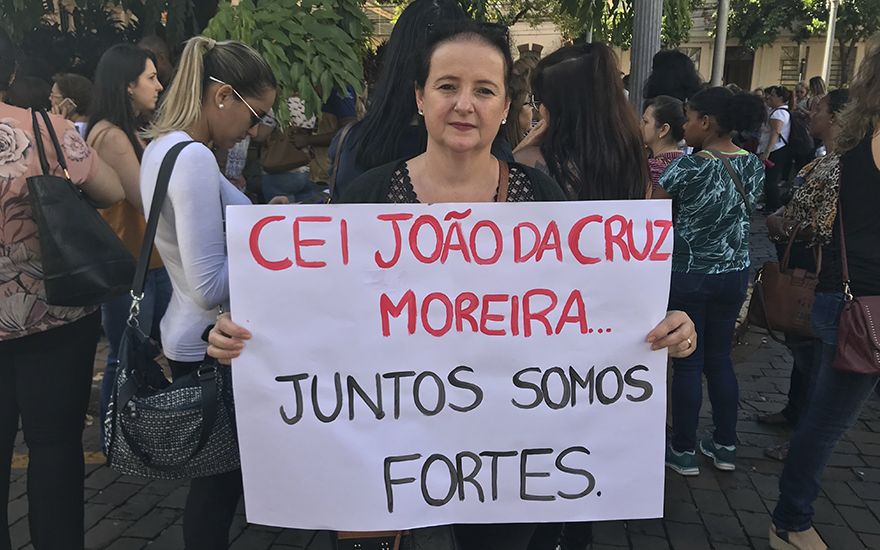 CEI JOÃO DA CRUZ
MOREIRA...
JUNTOS SOMOS
FORTES.